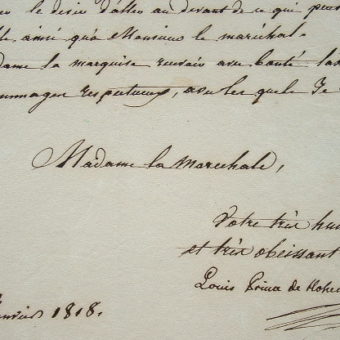 le désir d'aller au devant de ce qui peut
ainsi que Monsieur le maréchal.
la marquise recevoir avec bonté
hommages respectueux, avec lesquels Je
Madame la Marechale,
Votre très hum
et très obeissant
Louis Prince de Hohe
Janvier 1818.